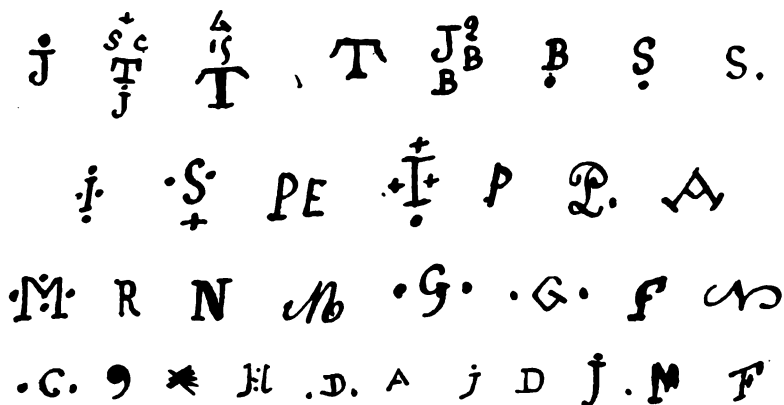 J S C T J 4 15 T T J Q B B B S S.
I S PE I P P. A
M R N M G G f N
C. 9 H .D. A j D J . M F